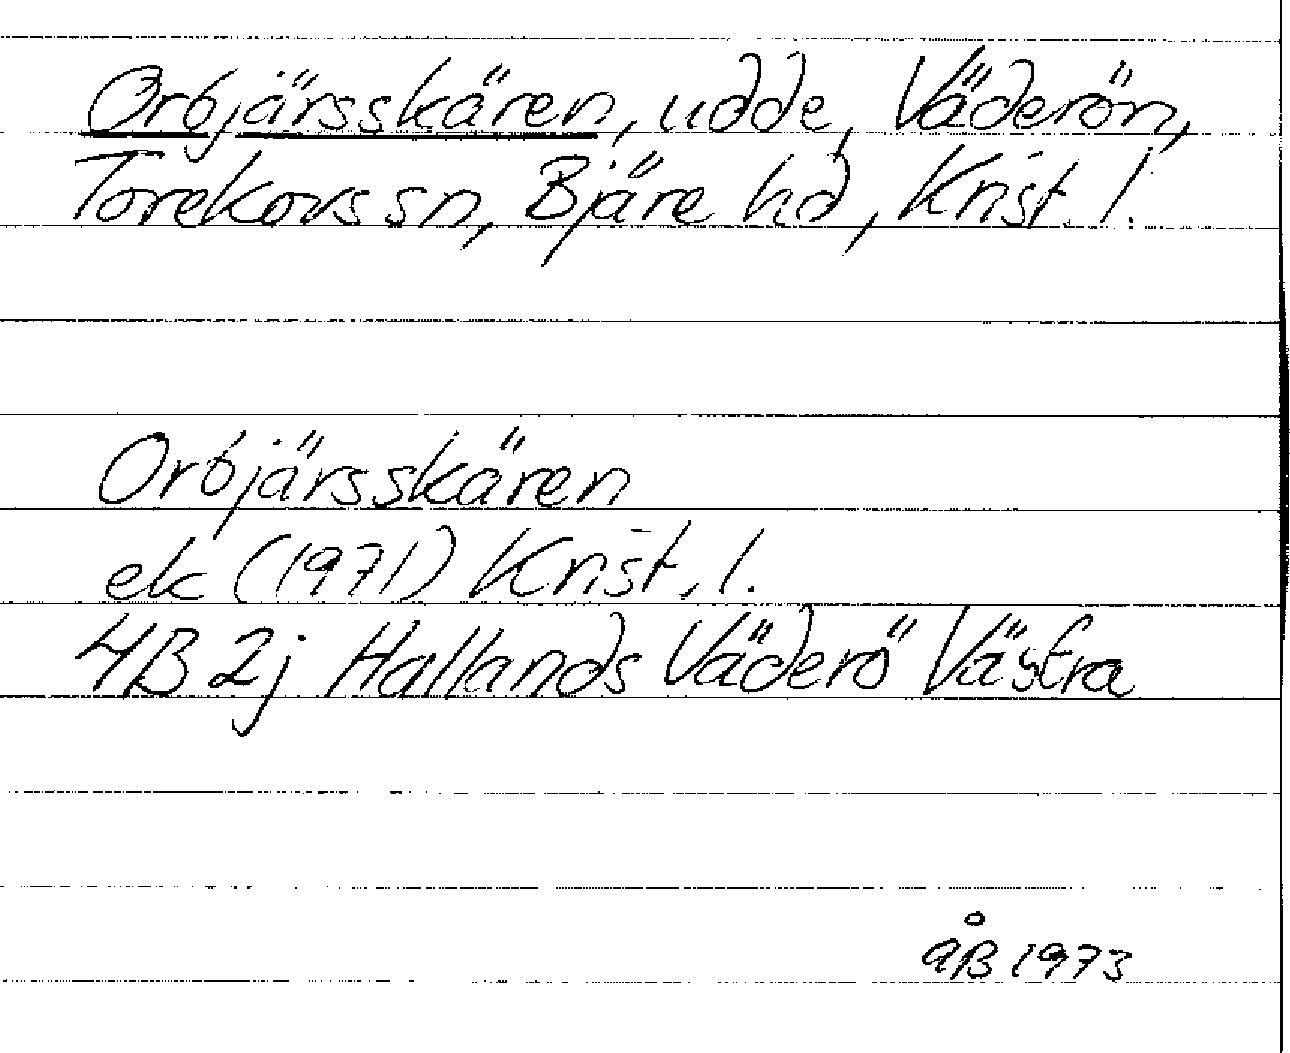 Orbjärsskären, udde, Väderön,
Torekovs sn, Bjäre hd, Krist. l.
Orbjärsskären
ek (1971) Krist. l.
4B 2j Hallands Väderö Västra
ÅB 1973